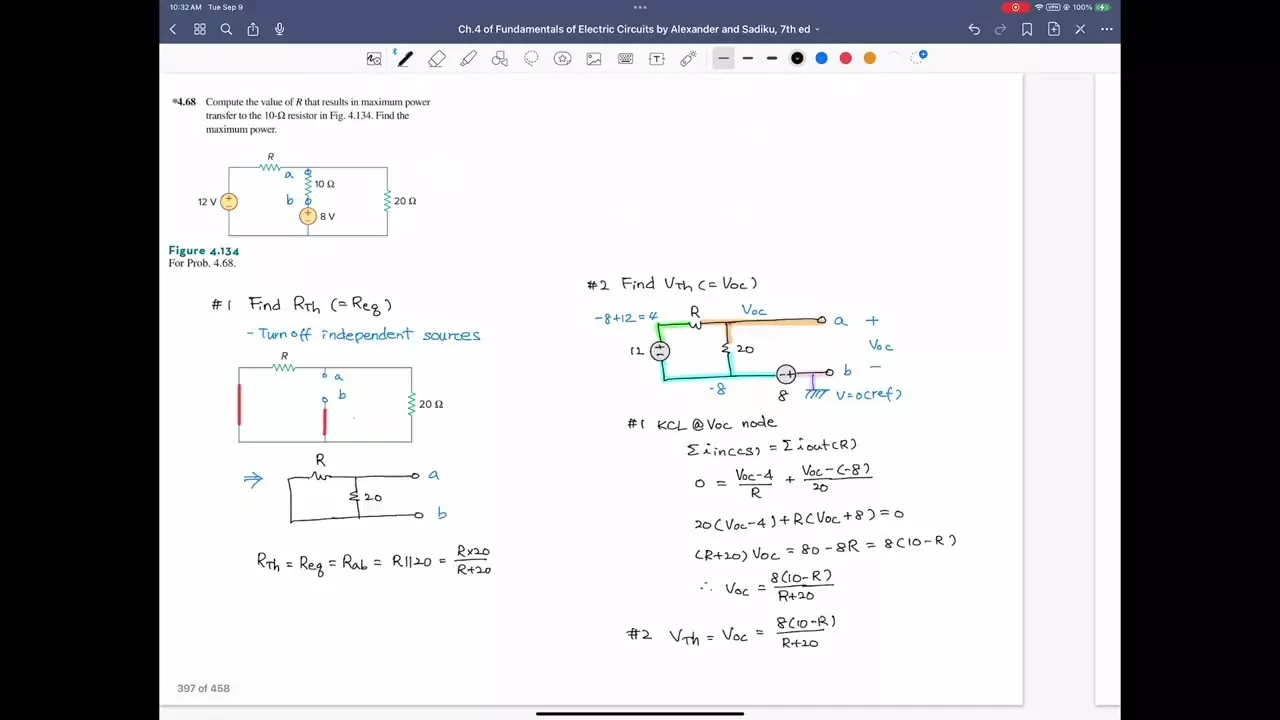 10:32 AM Tue Sep 9
VPN 100%
Ch.4 of Fundamentals of Electric Circuits by Alexander and Sadiku, 7th ed
T
*4.68 Compute the value of R that results in maximum power
transfer to the 10-Ω resistor in Fig. 4.134. Find the
maximum power.
R
a
10 Ω
12 V
b
20 Ω
8 V
Figure 4.134
For Prob. 4.68.
#1 Find RTh (= Req)
- Turn off independent sources
R
a
b
20 Ω
⇒
R
a
20
b
RTh = Req = Rab = R||20 = R×20 / R+20
#2 Find VTh (= Voc)
-8+12=4
R
Voc
a +
12
20
Voc
b -
-8
8
V=0(ref)
#1 KCL @ Voc node
Σiin(cs) = Σiout(R)
0 = Voc-4 / R + Voc-(-8) / 20
20(Voc-4)+R(Voc+8)=0
(R+20) Voc = 80-8R = 8(10-R)
∴ Voc = 8(10-R) / R+20
#2 VTh = Voc = 8(10-R) / R+20
397 of 458